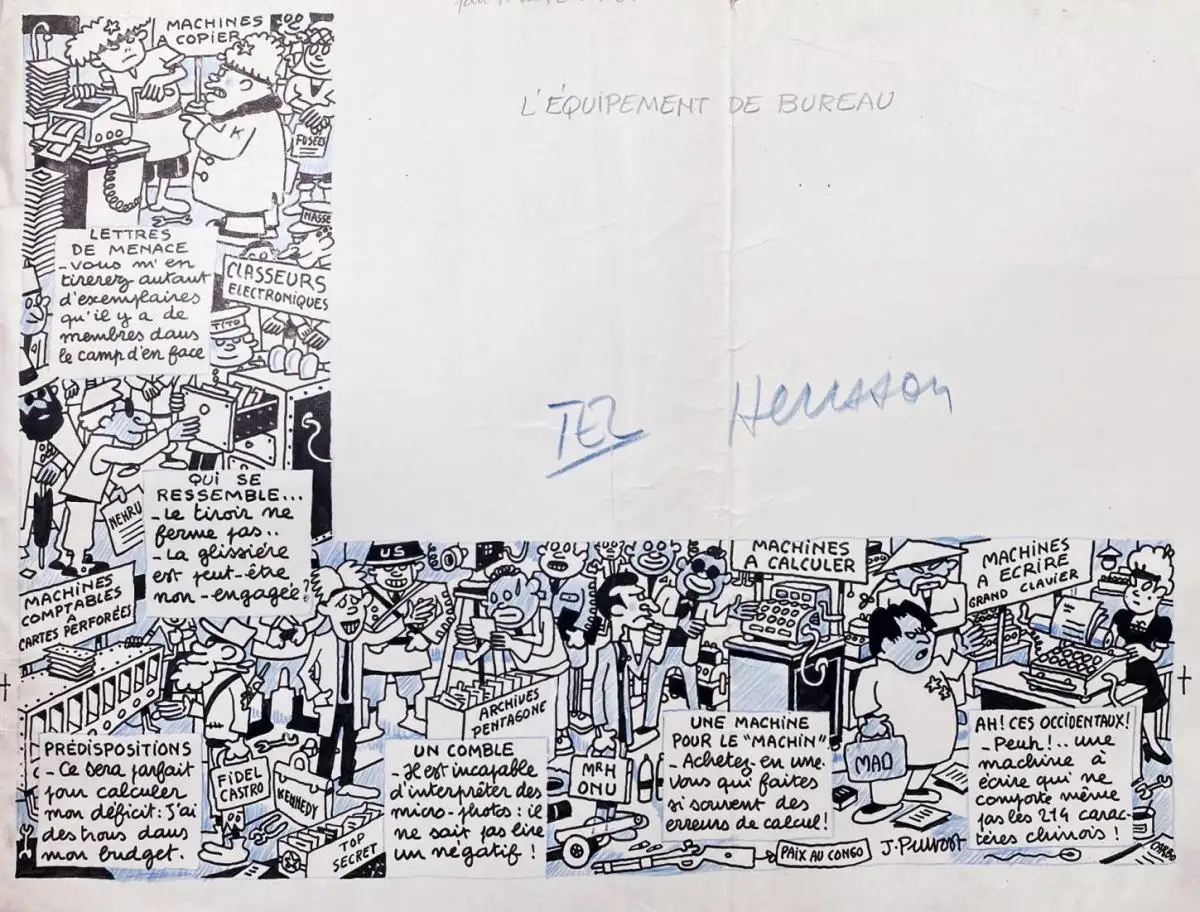 L'ÉQUIPEMENT DE BUREAU
TEL Herisson
MACHINES
A COPIER
K
FUSÉES
LETTRES
DE MENACE
- Vous m'en
tirerez autant
d'exemplaires
qu'il y a de
membres dans
le camp d'en face
NASSE
CLASSEURS
ELECTRONIQUES
TITO
NEHRU
QUI SE
RESSEMBLE...
- Le tiroir ne
ferme pas..
- La glissière
est peut-être
non-engagée?
MACHINES
COMPTABLES
A
CARTES PERFORÉES
PRÉDISPOSITIONS
- Ce sera parfait
pour calculer
mon déficit: J'ai
des trous dans
mon budget.
FIDEL
CASTRO
KENNEDY
TOP
SECRET
US
ARCHIVES
PENTAGONE
UN COMBLE
- Il est incapable
d'interpréter des
micro-photos: il
ne sait pas lire
un négatif!
MR H
ONU
MACHINES
A CALCULER
UNE MACHINE
POUR LE "MACHIN"
- Achetez-en une.
Vous qui faites
si souvent des
erreurs de calcul!
PAIX AU CONGO
MAO
MACHINES
A ECRIRE
GRAND CLAVIER
AH! CES OCCIDENTAUX!
- Peuh!.. une
machine à
écrire qui ne
comporte même
pas les 214 carac-
tères chinois!
J. Pruvost